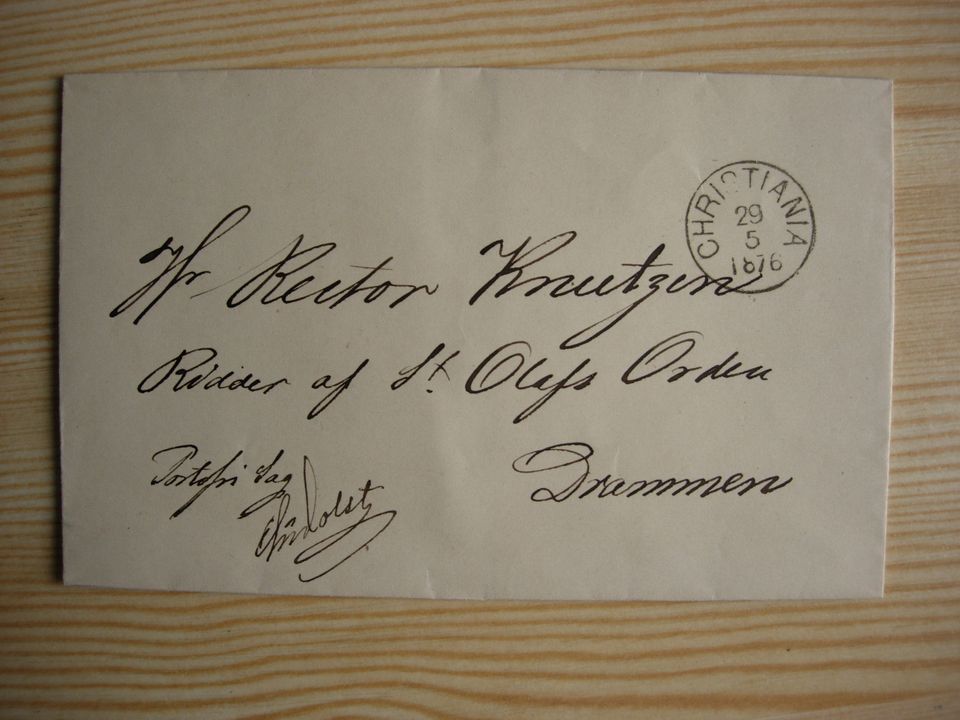 CHRISTIANIA
29
5
1876
Hr Rector Knutzen
Ridder af St. Olafs Orden
Portofri Sag
Drammen